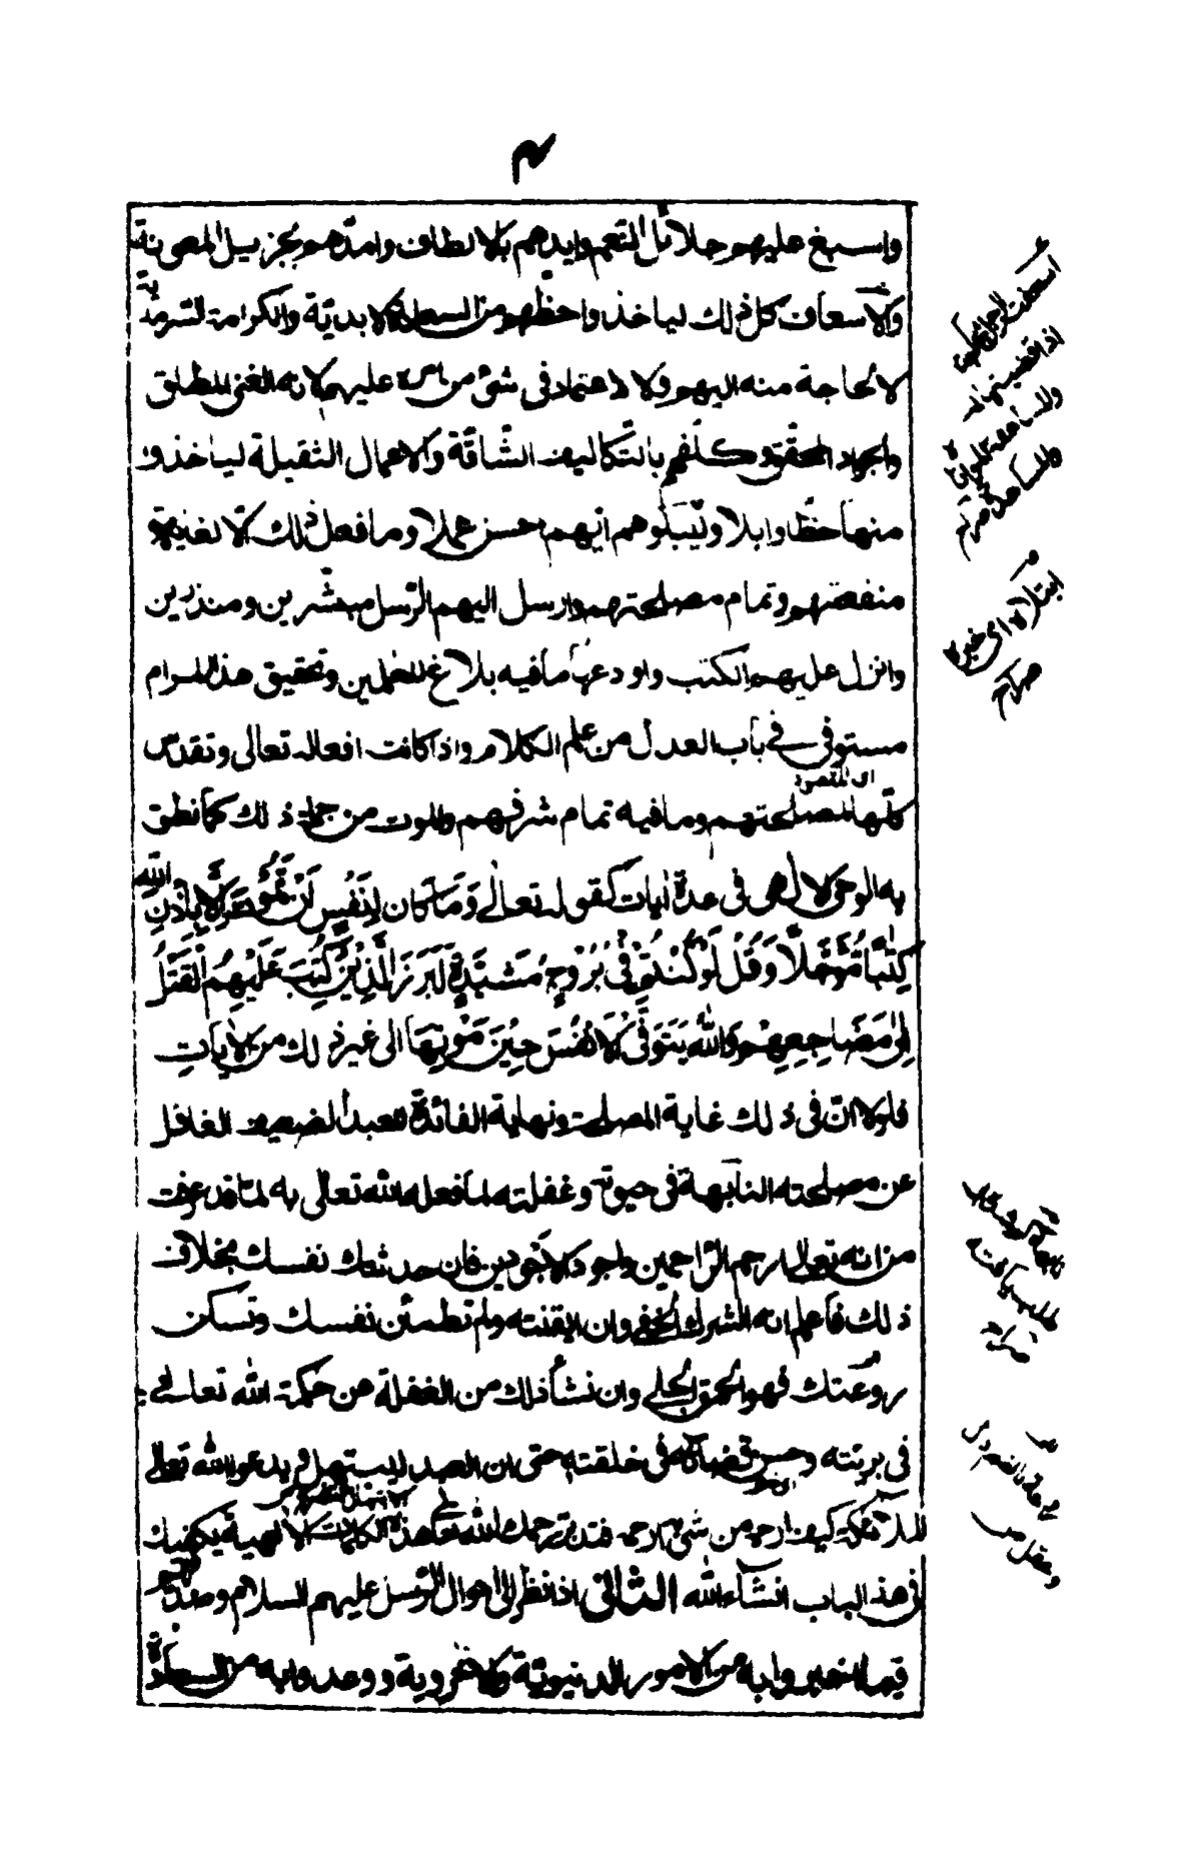 م
واسبغ عليهم جلائل النعم وايدهم بالالطاف وامدّهم بجزيل المعونة
والاسعاف كل ذلك لياخذوا حظّهم من السعادة الابديّة والكرامة السّرمديّة
لا لحاجة منه اليهم ولا لاعتماد فى شئ من امره عليهم لانه الغنى المطلق
والجواد المحقّق وكلّفهم بالتّكاليف الشّاقّة والاعمال الثقيلة لياخذوا
منها حظّا وابلا وليبلوهم ايّهم احسن عملا وما فعل ذلك الّا لغذية
منفعتهم وتمام مصلحتهم وارسل اليهم الرّسل مبشّرين ومنذرين
وانزل عليهم الكتب واودعها ما فيه بلاغ للعاملين وتحقيق هذا المرام
مستوفى فى باب العدل من علم الكلام واذا كانت افعاله تعالى وتقدّس
اى المقصود
كلّها لمصلحتهم وما فيه تمام شرفهم والموت من جملة ذلك كما نطق
به الوحى الالهى فى عدة ايات كقوله تعالى وَمَا كَان لِنَفْسٍ اَنْ تَمُوْتَ اِلَّا بِاِذْنِ اللّٰه
كِتٰبًا مُؤَجَّلًا وَقُلْ لَوْ كُنْتُمْ فِىْ بُرُوْجٍ مُشَيَّدَةٍ لَبَرَزَ الَّذِيْنَ كُتِبَ عَلَيْهِمُ الْقَتْلُ
اِلٰى مَضَاجِعِهِمْ وَاللّٰهُ يَتَوَفَّى الْاَنْفُسَ حِيْنَ مَوْتِهَا الى غير ذلك من الايات
فلولا انّ فى ذلك غاية المصلحة ونهاية الفائدة للعبد الضعيف الغافل
عن مصلحته النابهة فى حيوته وغفلته لما فعله الله تعالى به لما قد عرفت
من انه تعالى ارحم الرّاحمين واجود الاجودين فان حدثتك نفسك بخلاف
ذلك فاعلم انه الشرك الخفى وان ايقنته ولم تطمئن نفسك وتسكن
روعتك فهو الحمق الجلى وان نشأ ذلك من الغفلة عن حكمة اللّٰه تعالى
فى بريّته وحسن قضائه فى خليقته حتى ان العبد ليبتهل ويدعو اللّٰه تعالى
كيف ارحمه من شئ به ارحمه فتدبّر رحمك اللّٰه تعالى هذه الكلمات الالهية يكفيك
فى هذا الباب انشآء اللّٰه الثانى اذا نظر الى احوال الرّسل عليهم السلام وصدّقهم
فيما اخبروا به من الامور الدنيويّة والاخروية ووعدوا به من السعادة
ابتلاه اى خبره
صراح
صراح